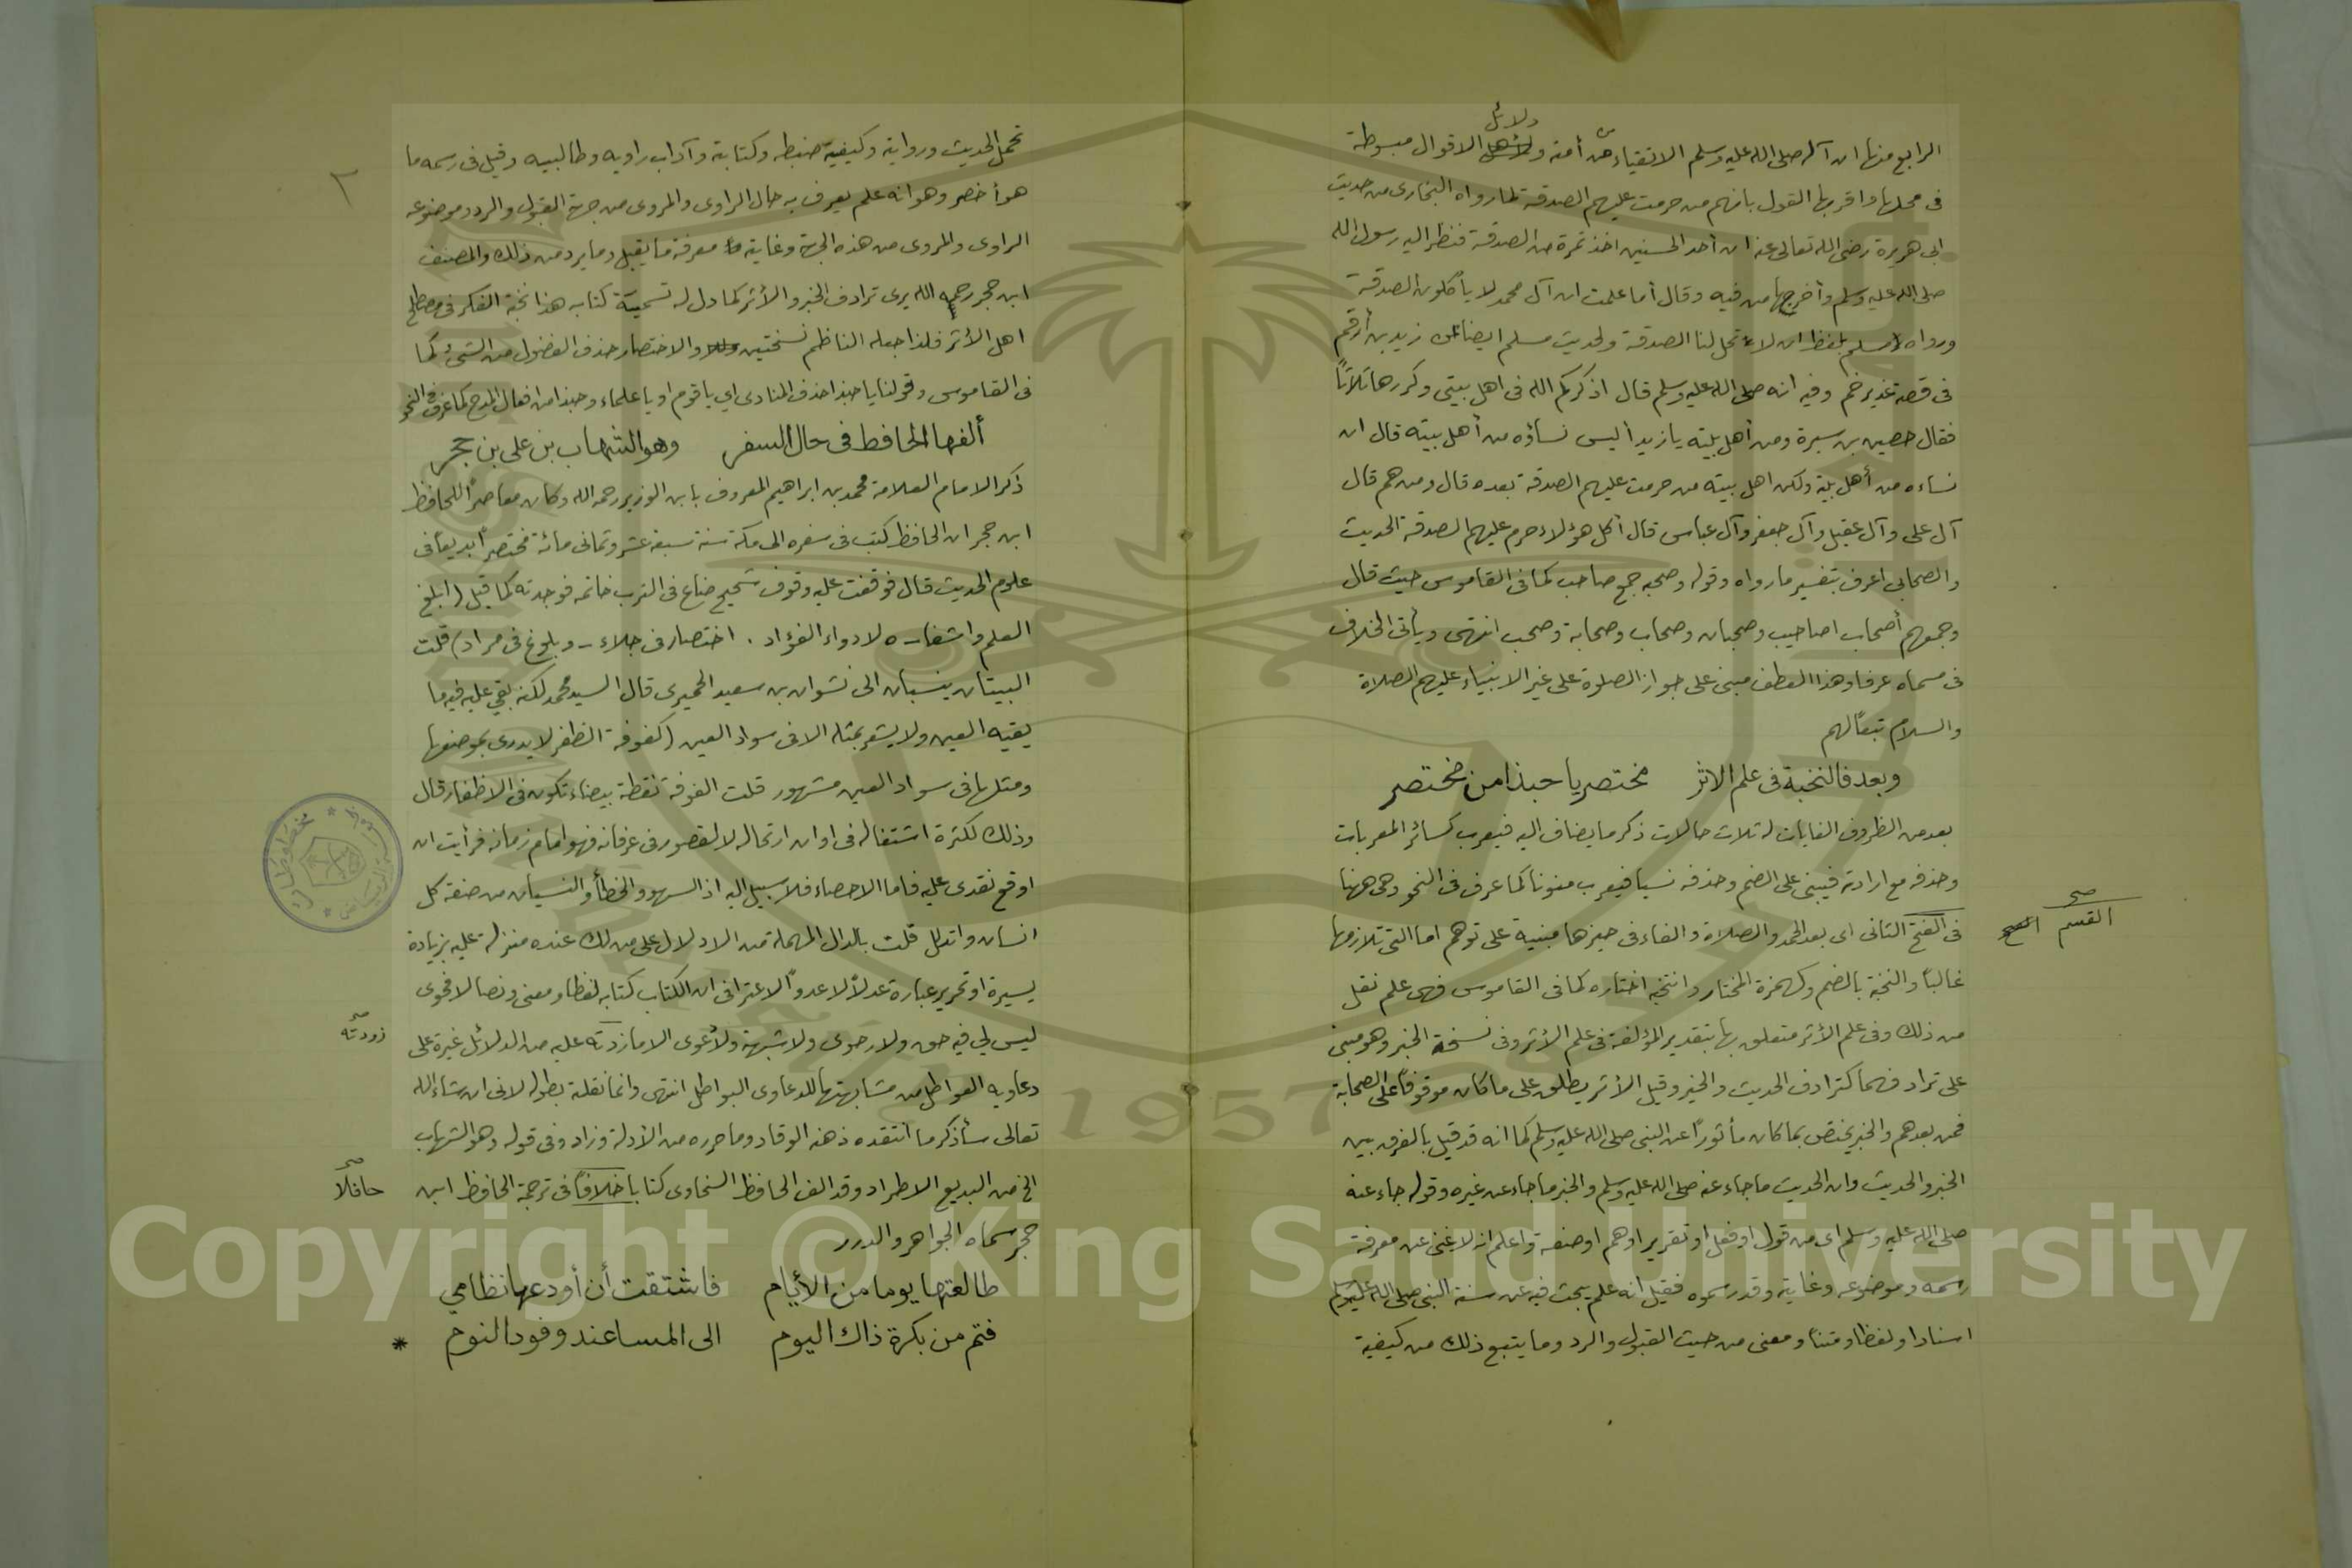 دلائل
الرابع منها ان آله صلى الله عليه وسلم الاتقياء من أمته و الاقوال مبسوطة
فى محلها واقربها القول بانهم من حرمت عليهم الصدقة لما رواه البخارى من حديث
ابى هريرة رضى الله تعالى عنه ان أحد الحسنين اخذ تمرة من الصدقة فنظر اليه رسول الله
صلى الله عليه وسلم وأخرجها من فيه وقال أما علمت ان آل محمد لا يأكلون الصدقة
ورواه مسلم بلفظ انه لا تحل لنا الصدقة ولحديث مسلم ايضا عن زيد بن أرقم
فى قصة غدير خم وفيه انه صلى الله عليه وسلم قال اذكركم الله فى اهل بيتى وكررها ثلاثاً
فقال حصين بن سبرة ومن أهل بيته يا زيد أليس نساؤه من أهل بيته قال ان
نساءه من أهل بيته ولكن اهل بيته من حرمت عليهم الصدقة بعده قال ومن هم قال
آل على وآل عقيل وآل جعفر وآل عباس قال أكل هؤلاء حرم عليهم الصدقة الحديث
والصحابى اعرف بتفسير ما رواه وقوله وصحبه جمع صاحب كما فى القاموس حيث قال
وجمعهم أصحاب اصاحيب وصحبان وصحاب وصحابة وصحب انتهى ويأتى الخلاف
فى مسماه عرفا وهذا العطف مبنى على جواز الصلوة على غير الانبياء عليهم الصلاة
والسلام تبعاً لهم
وبعد فالنخبة فى علم الاثر مختصر يا حبذا من مختصر
بعد من الظروف الغايات له ثلاث حالات ذكر ما يضاف اليه فيعرب كسائر المعربات
وحذفه مع ارادته فيبنى على الضم وحذفه نسيا فيعرب منونا كما عرف فى النحو وهى ههنا
فى الفتح الثانى اى بعد الحمد والصلاة والفاء فى حيزها مبنية على توهم اما التى تلازمها
صح
القسم
غالباً والنخبة بالضم وكهمزة المختار وانتخبه اختاره كما فى القاموس فهى علم نقل
من ذلك وفى علم الأثر متعلق بها بتقدير المؤلفة فى علم الأثر وفى نسخة الخبر وهو مبنى
على ترادفهما كترادف الحديث والخبر وقيل الأثر يطلق على ما كان موقوفا على الصحابة
فمن بعدهم والخبر يختص بما كان مأثوراً عن النبى صلى الله عليه وسلم كما انه قد قيل بالفرق بين
الخبر والحديث وان الحديث ما جاء عنه صلى الله عليه وسلم والخبر ما جاء عن غيره وقوله جاء عنه
صلى الله عليه وسلم اى من قول او فعل او تقرير او هم او صفة واعلم انه لا غنى عن معرفة
رسمه وموضوعه وغايته وقد رسموه فقيل انه علم يبحث فيه عن سنة النبى صلى الله عليه وسلم
اسنادا ولفظا ومتناً ومعنى من حيث القبول والرد وما يتبع ذلك من كيفية
٢
تحمل الحديث وروايته وكيفية ضبطه وكتابة وآداب راويه وطالبيه وقيل فى رسمه ما
هو أخصر وهو انه علم يعرف به حال الراوى والمروى من جهة القبول والرد وموضوعه
الراوى والمروى من هذه الجهة وغايته معرفة ما يقبل وما يرد من ذلك والمصنف
ابن حجر رحمه الله يرى ترادف الخبر والأثر كما دل له تسمية كتابه هذا نخبة الفكر فى مصطلح
اهل الأثر فلذا جعله الناظم نسختين والاختصار حذف الفضول من الشىء كما
فى القاموس وقولنا يا حبذا حذف المنادى اى يا قوم او يا علماء وحبذا من افعال المدح كما عرف فى النحو
ألفها الحافظ فى حال السفر وهو الشهاب بن على بن حجر
ذكر الامام العلامة محمد بن ابراهيم المعروف بابن الوزير رحمه الله وكان معاصراً للحافظ
ابن حجر ان الحافظ كتب فى سفره الى مكة سنة سبعة عشر وثمانى مائة مختصراً بديعا فى
علوم الحديث قال فوقفت عليه وقوف شحيح ضاع فى الترب خاتمه فوجدته كما قيل (ابلغ
العلم واشفاه لادواء الفؤاد . اختصار فى جلاء - وبلوغ فى مراد) قلت
البيتان ينسبان الى نشوان بن سعيد الحميرى قال السيد محمد لكنه بقى عليه فيه ما
يقيه العين ولا يشعر بمثله الا فى سواد العين (كفوفة الظفر لا يدرى بموضعها
ومثلها فى سواد العين مشهور قلت الفوفة نقطة بيضاء تكون فى الاظفار قال
وذلك لكثرة اشتغاله فى اوان ارتحاله لا لقصور فى عرفانه فهو امام زمانه فرأيت ان
اوقع نقدى عليه فاما الاحصاء فلا سبيل اليه اذ السهو والخطأ والنسيان من صفة كل
انسان واتدلل قلت بالدال المهملة من الادلال على من لك عنده منزلة عليه بزيادة
يسيرة او تحرير عبارة عدلاً لا عدواً لاعترافى ان الكتاب كتابه لفظا ومعنى ونصا لا فحوى
ليس لي فيه حق ولا رجوى ولا شبهة ولا غوى الا ما زدته عليه من الدلائل غيرة على
صح
زودته
دعاويه العواطل من مشابهتها للدعاوى البواطل انتهى وانما نقلته بطوله لانى ان شاء الله
تعالى سأذكر ما انتقده ذهنه الوقاد وما حرره من الأدلة وزاد وفى قوله وهو الشهاب
الخ من البديع الاطراد وقد الف الحافظ السخاوى كتابا خلافاً فى ترجمة الحافظ ابن
صح
حافلاً
حجر سماه الجواهر والدرر
طالعتها يوما من الأيام فاشتقت أن أودعها نظامي
فتم من بكرة ذاك اليوم الى المسا عند وفود النوم *
1957
Copyright © King Saud University